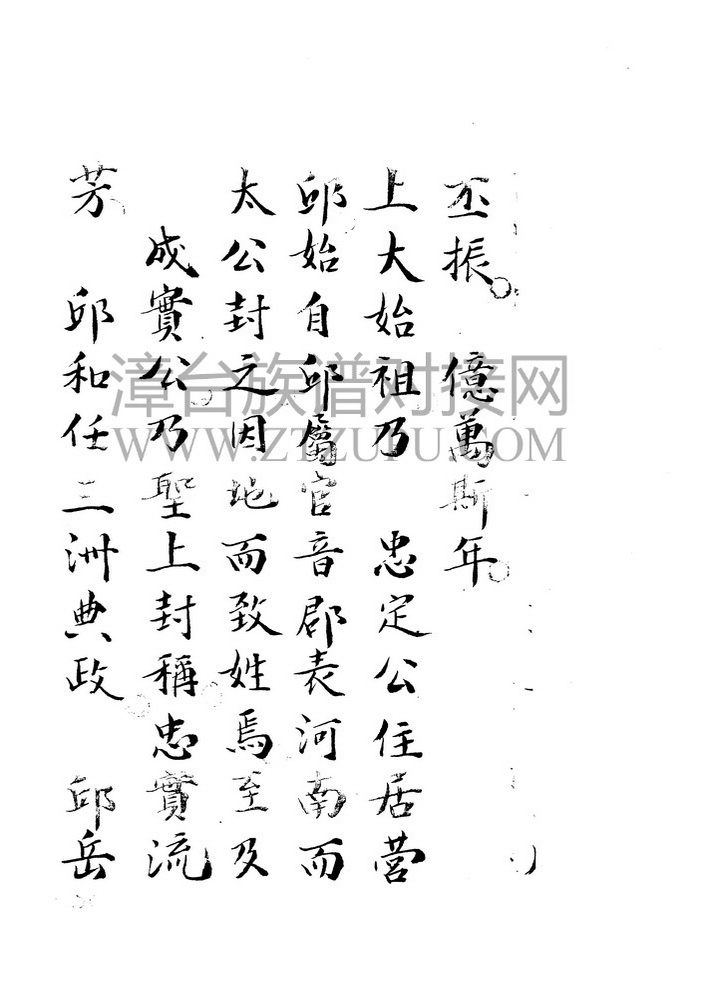 丕振 億萬斯年
上大始祖乃 忠定公住居营
邱始自邱屬官音郡表河南而
太公封之因地而致姓焉至及
成實公乃聖上封稱忠實流
芳 邱和任三洲典政 邱岳
漳台族谱对接网
WWW.ZTZUPU.COM